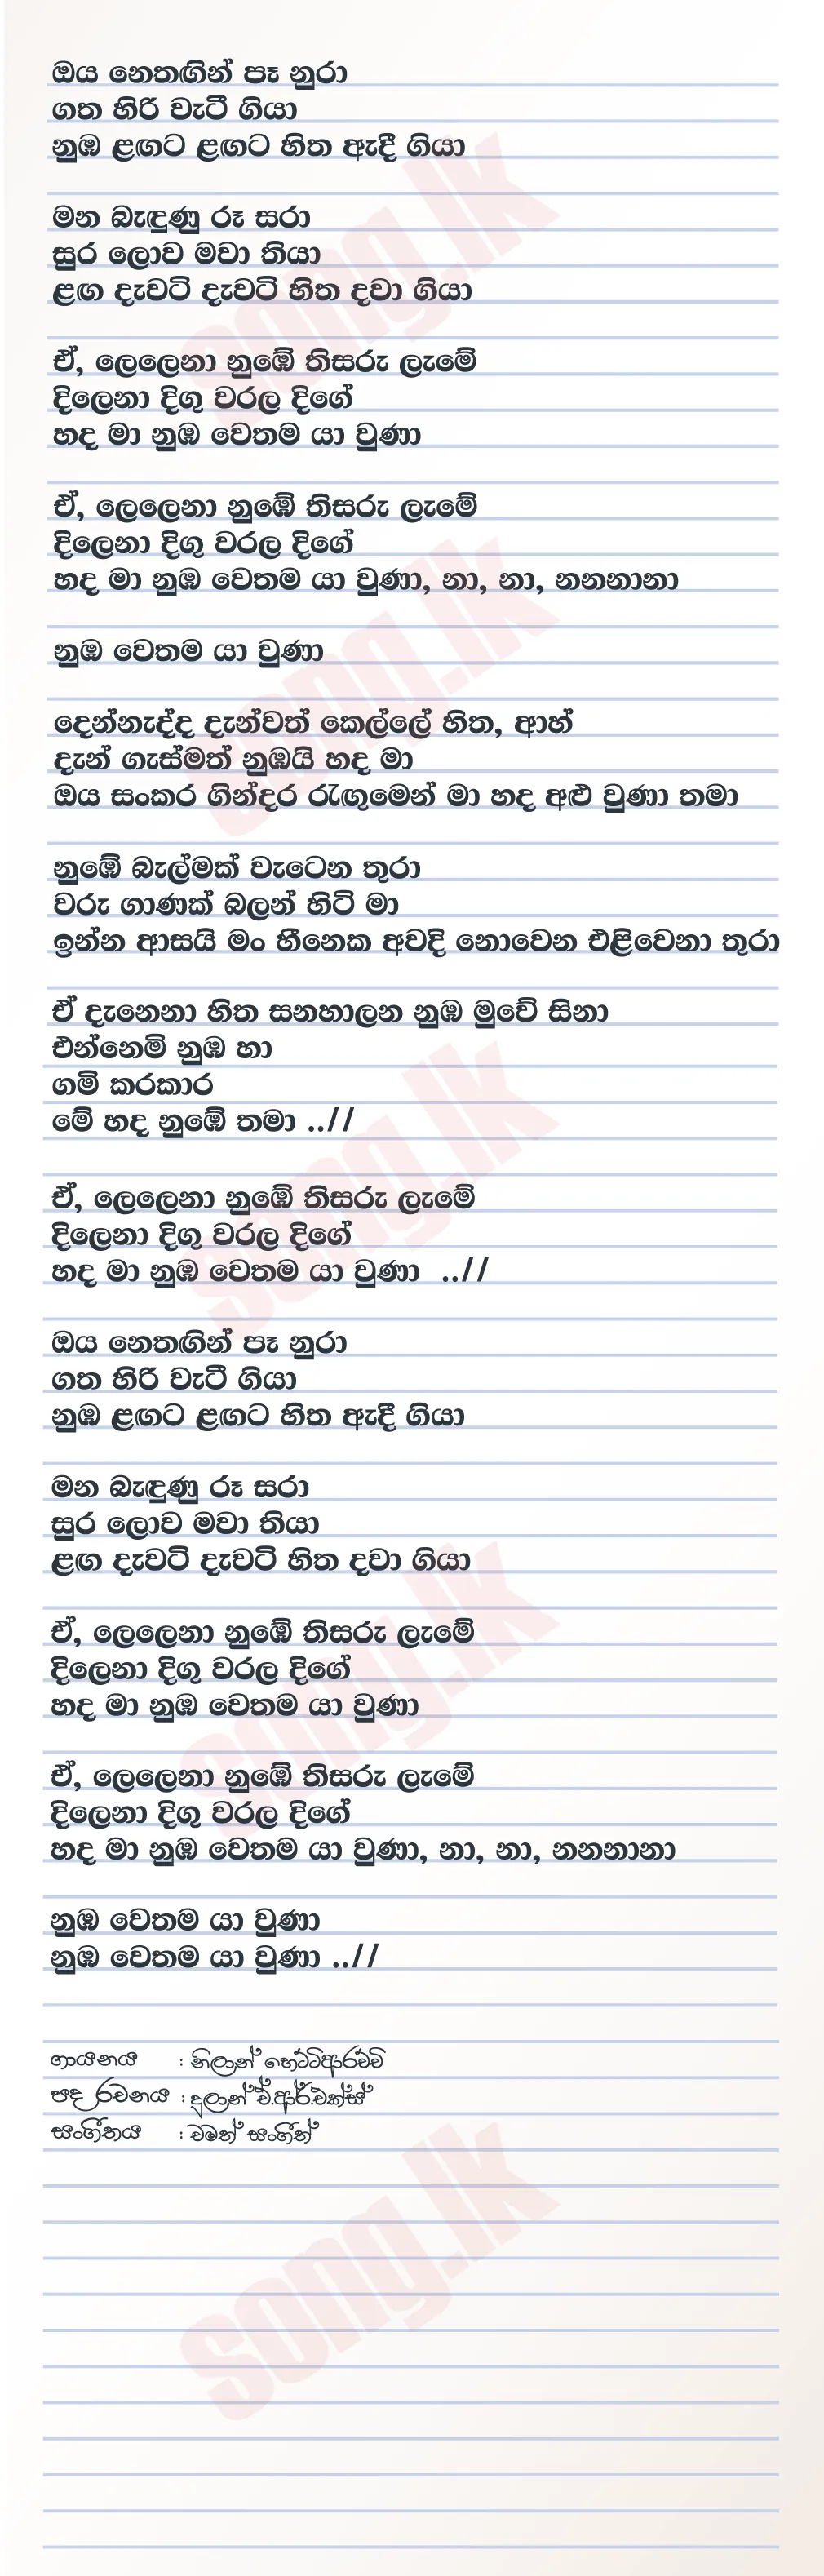 ඔය නෙතඟින් පෑ නුරා
ගත හිරි වැටී ගියා
නුඹ ළඟට ළඟට හිත ඇදී ගියා
මන බැඳුණු රූ සරා
සුර ලොව මවා තියා
ළඟ දැවටි දැවටි හිත දවා ගියා
ඒ, ලෙලෙනා නුඹේ තිසරු ලැමේ
දිලෙනා දිගු වරල දිගේ
හද මා නුඹ වෙතම යා වුණා
ඒ, ලෙලෙනා නුඹේ තිසරු ලැමේ
දිලෙනා දිගු වරල දිගේ
හද මා නුඹ වෙතම යා වුණා, නා, නා, නනනානා
නුඹ වෙතම යා වුණා
දෙන්නැද්ද දැන්වත් කෙල්ලේ හිත, ආහ්
දැන් ගැස්මත් නුඹයි හද මා
ඔය සංකර ගින්දර රැඟුමෙන් මා හද අළු වුණා තමා
නුඹේ බැල්මක් වැටෙන තුරා
වරු ගාණක් බලන් හිටි මා
ඉන්න ආසයි මං හීනෙක අවදි නොවෙන එළිවෙනා තුරා
ඒ දැනෙනා හිත සනහාලන නුඹ මුවේ සිනා
එන්නෙමි නුඹ හා
ගමි කරකාර
මේ හද නුඹේ තමා ..//
ඒ, ලෙලෙනා නුඹේ තිසරු ලැමේ
දිලෙනා දිගු වරල දිගේ
හද මා නුඹ වෙතම යා වුණා ..//
ඔය නෙතඟින් පෑ නුරා
ගත හිරි වැටී ගියා
නුඹ ළඟට ළඟට හිත ඇදී ගියා
මන බැඳුණු රූ සරා
සුර ලොව මවා තියා
ළඟ දැවටි දැවටි හිත දවා ගියා
ඒ, ලෙලෙනා නුඹේ තිසරු ලැමේ
දිලෙනා දිගු වරල දිගේ
හද මා නුඹ වෙතම යා වුණා
ඒ, ලෙලෙනා නුඹේ තිසරු ලැමේ
දිලෙනා දිගු වරල දිගේ
හද මා නුඹ වෙතම යා වුණා, නා, නා, නනනානා
නුඹ වෙතම යා වුණා
නුඹ වෙතම යා වුණා ..//
ගායනය : නිලාන් හෙට්ටිආරච්චි
පද රචනය : දුලාන් ඒ.ආර්.එක්ස්
සංගීතය : චමත් සංගීත්
song.lk
song.lk
song.lk
song.lk
song.lk